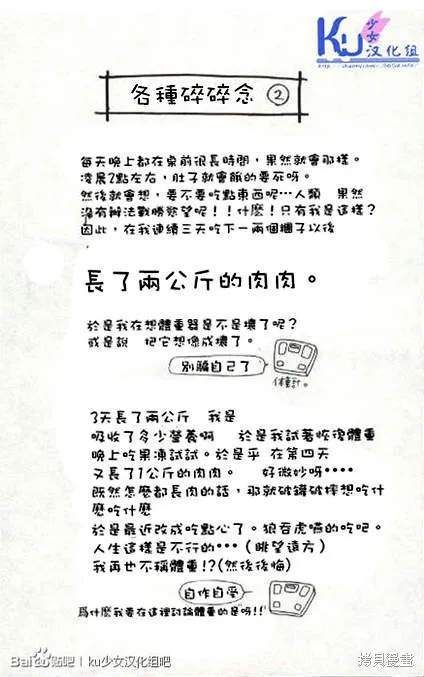 KU少女汉化组
各種碎碎念 ②
每天晚上都在桌前很長時間，果然就會那樣。
凌晨2點左右，肚子就會餓的要死呀。
然後就會想，要不要吃點東西呢…人類 果然
沒有辦法戰勝慾望呢！！什麼！只有我是這樣？
因此，在我連續三天吃下一兩個糰子以後
長了兩公斤的肉肉。
於是我在想體重器是不是壞了呢？
或是說 把它想像成壞了。
別騙自己了
体重計。
3天長了兩公斤 我是
吸收了多少營養啊 於是我試著恢復體重
晚上吃果凍試試。於是乎 在第四天
又長了1公斤的肉肉。 好微妙呀‥‥
既然怎麼都長肉的話，那就破罐破摔想吃什
麼吃什麼
於是最近改成吃點心了。狼吞虎嚥的吃吧。
人生這樣是不行的…（眺望遠方）
我再也不稱體重!?(然後後悔)
自作自受
爲什麼我要在這裡討論體重的是呀!!
Bai贴吧 | ku少女汉化组吧
拷貝漫畫